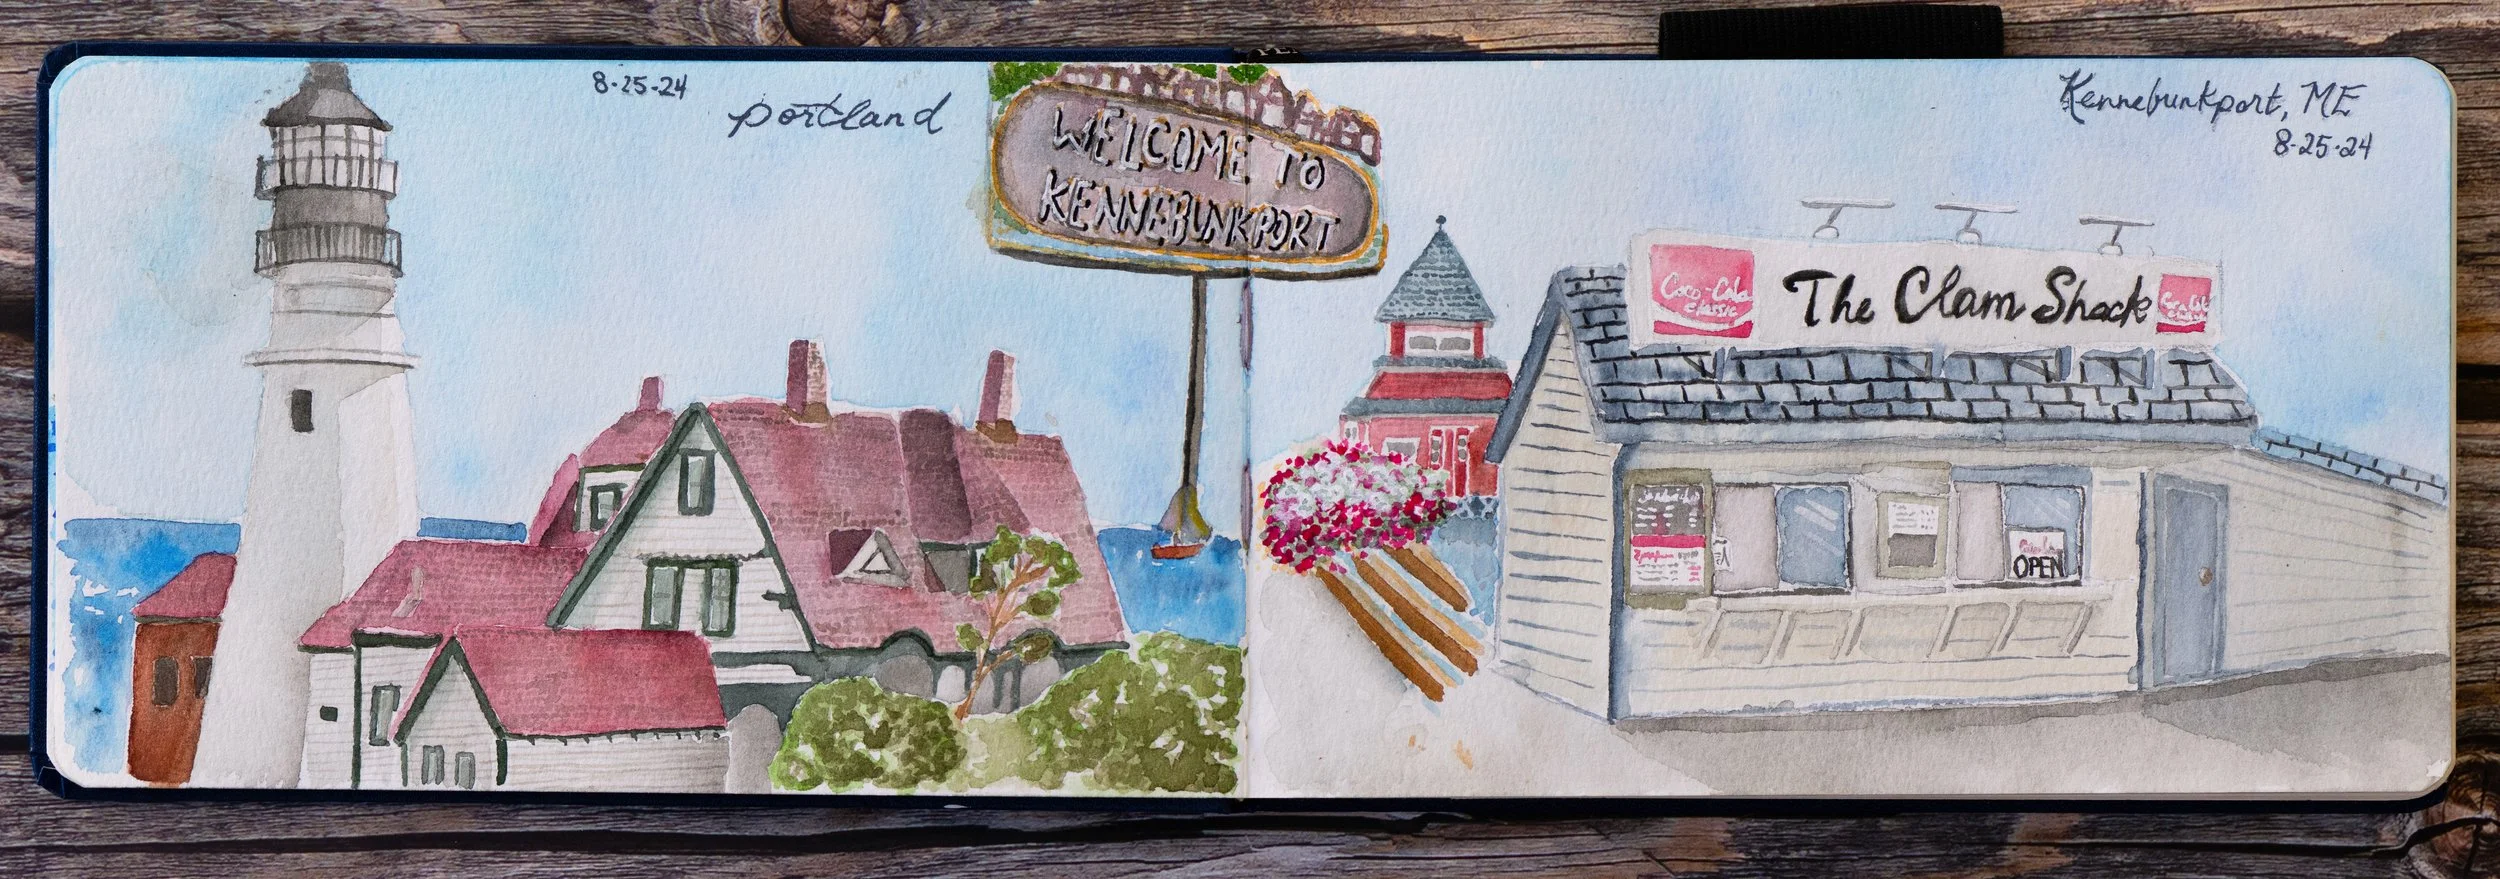 8-25-24
portland
WELCOME TO
KENNEBUNKPORT
Kennebunkport, ME
8-25-24
Coca-Cola
classic
The Clam Shack
Coca-Cola
OPEN